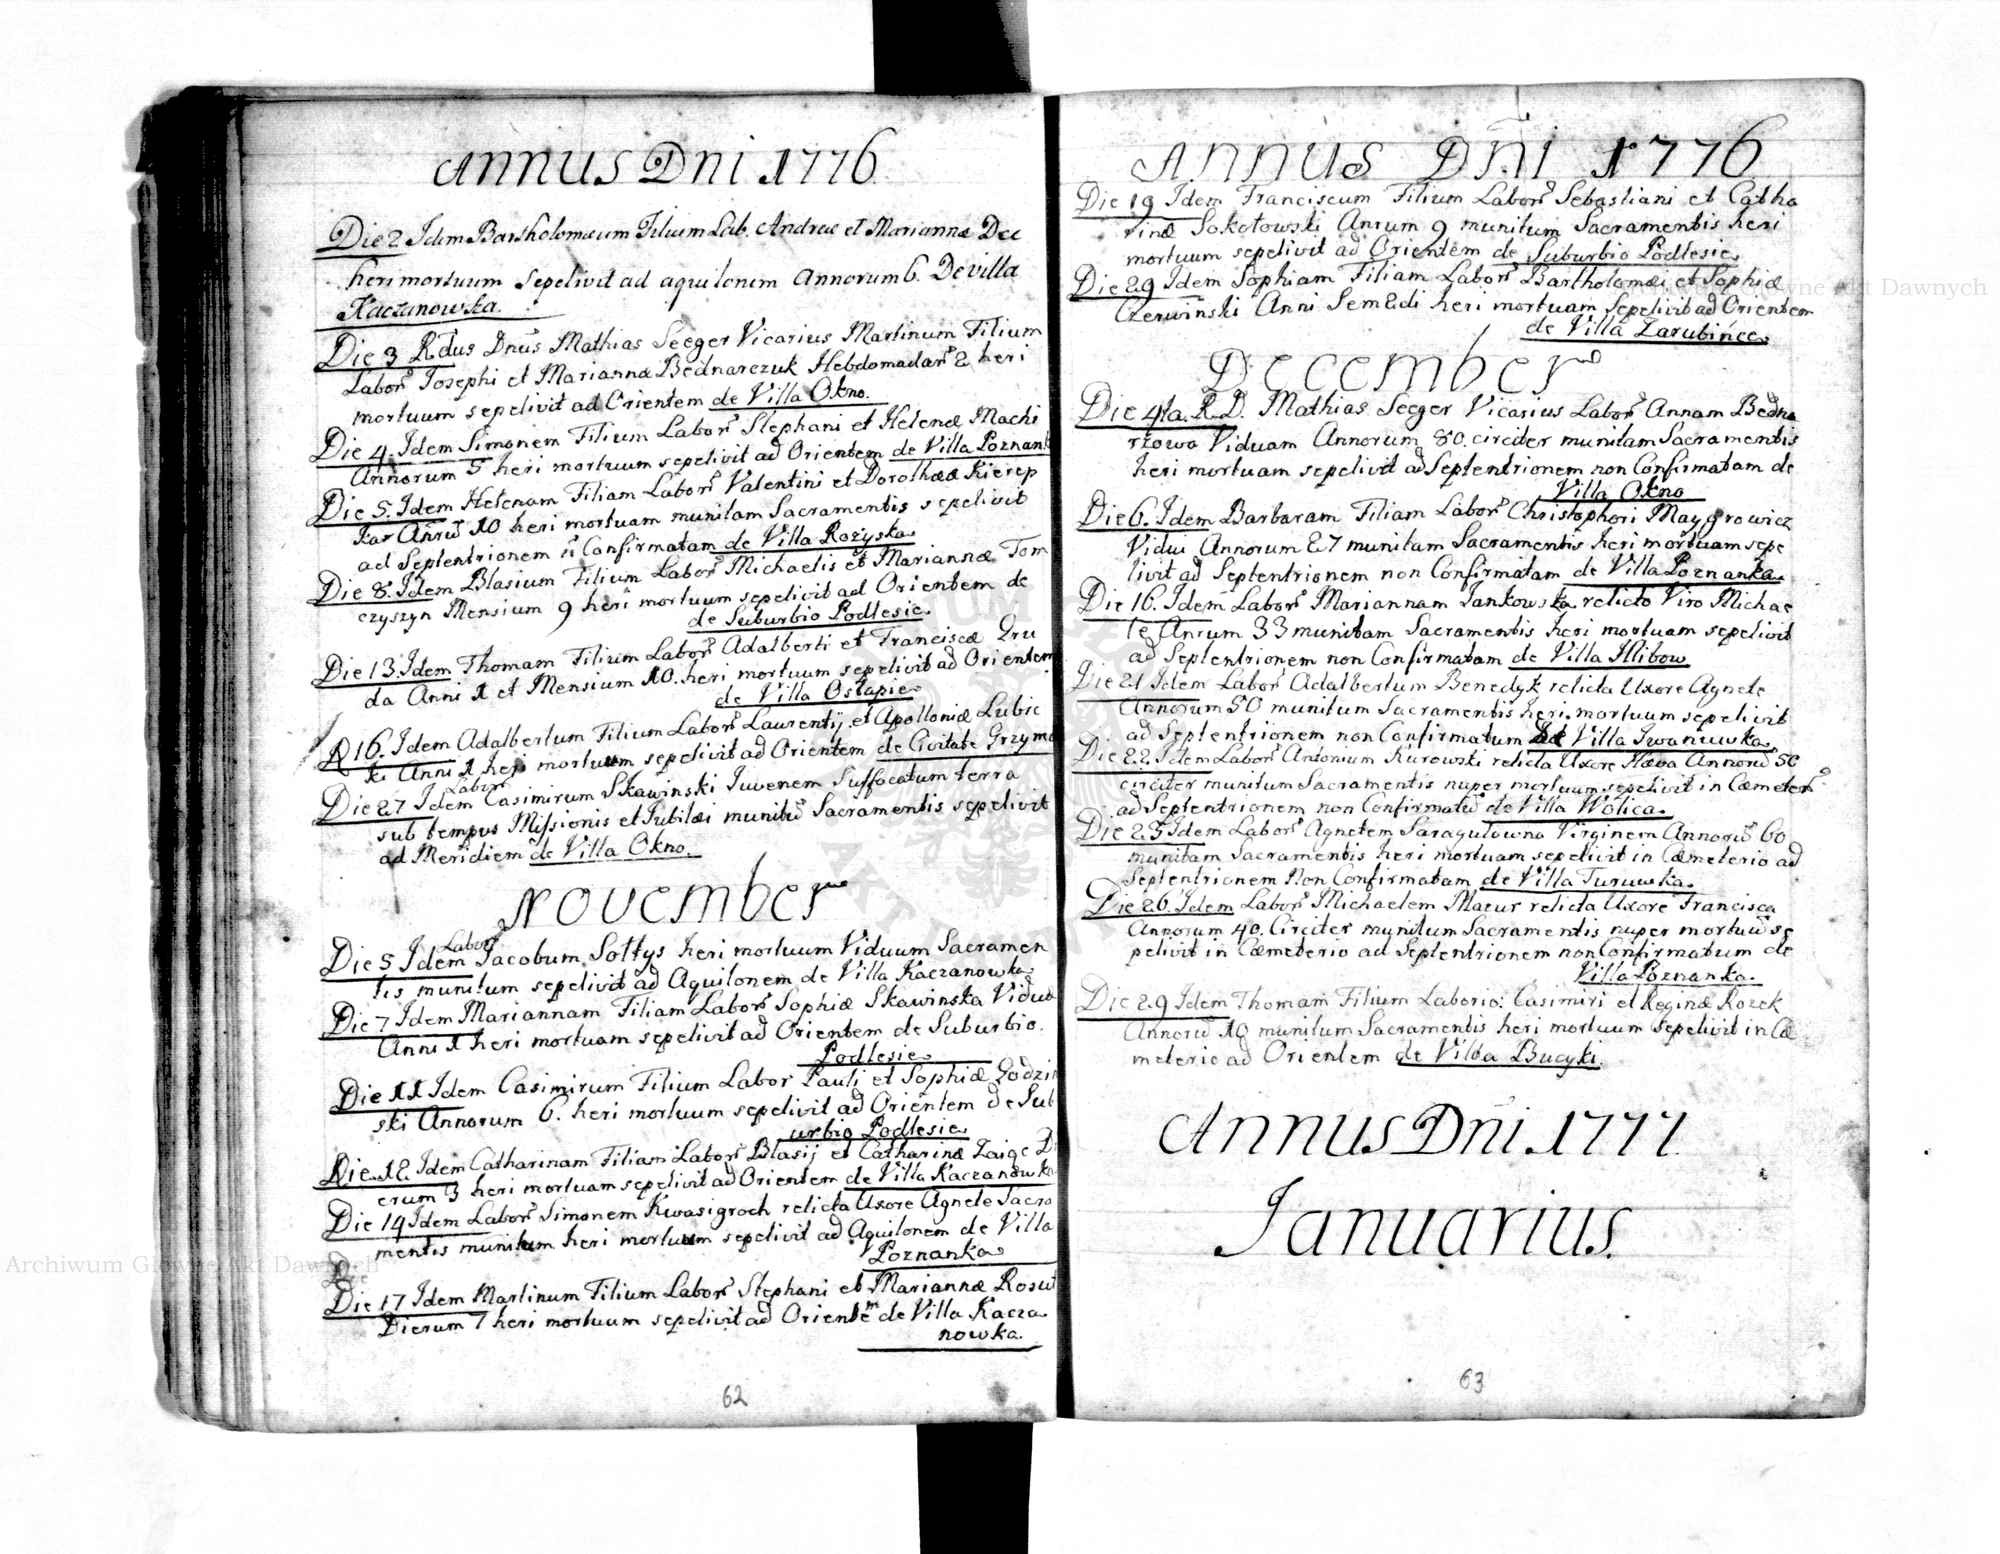 Annus Dni 1776
Die 2 Idem Bartholomæum Filium Lab. Andreæ et Mariannæ Dec
heri mortuum sepelivit ad aquilonem Annorum 6. De villa
Kaczanowska.
Die 3 Rdus Dnus Mathias Seeger Vicarius Martinum Filium
Labor Josephi et Mariannæ Bednarczuk Hebdomadar 2 heri
mortuum sepelivit ad Orientem de Villa Okno.
Die 4. Idem Simonem Filium Labor Stephani et Helenæ Machi
Annorum 5 heri mortuum sepelivit ad Orientem de Villa Poznank
Die 5. Idem Helenam Filiam Labor Valentini et Dorothææ Kierep
kar Anrũ 10 heri mortuam munitam Sacramentis sepelivit
ad Septentrionem ñ Confirmatam de Villa Rożyska
Die 8. Idem Blasium Filium Labor Michaelis et Mariannæ Tom
czyszyn Mensium 9 heri mortuum sepelivit ad Orientem de
de Suburbio Podlesie
Die 13 Idem Thomam Filium Labor Adalberti et Franciscæ Gru
da Anni 1 et Mensium 10. heri mortuum sepelivit ad Orientem
de Villa Ostapie
D 16. Idem Adalbertum Filium Labor Laurentij et Apolloniæ Lubic
ki Anni 1 heri mortuum sepelivit ad Orientem de Civitate Grzyma
Labor
Die 27 Idem Casimirum Skawinski Iuvenem Suffocatum terra
sub tempus Missionis et Jubilæi munitũ Sacramentis sepelivit
ad Meridiem de Villa Okno.
November
Labor
Die 5 Idem Jacobum Sołtys heri mortuum Viduum Sacramen
tis munitum sepelivit ad Aquilonem de Villa Kaczanowka
Die 7 Idem Mariannam Filiam Labor Sophiæ Skawinska Viduæ
Anni 1 heri mortuam sepelivit ad Orientem de Suburbio.
Podlesie
Die 11 Idem Casimirum Filium Labor Pauli et Sophiæ Godzin
ski Annorum 6. heri mortuum sepelivit ad Orientem de Sub
urbio Podlesie
Die 12. Idem Catharinam Filiam Labor Blasij et Catharinæ Zaigc Di
erum 3 heri mortuam sepelivit ad Orientem de Villa Kaczanowka
Die 14 Idem Labor Simonem Kwasigroch relicta Uxore Agnete Sacra
mentis munitum heri mortuum sepelivit ad Aquilonem de Villa
Poznanka
Die 17 Idem Martinum Filium Labor Stephani et Mariannæ Rosut
Dierum 7 heri mortuum sepelivit ad Orientem de Villa Kacza
nowka.
62
Annus Dñi 1776
Die 19 Idem Franciscum Filium Labor Sebastiani et Catha
rinæ Sokołowski Anrum 9 munitum Sacramentis heri
mortuum sepelivit ad Orientem de Suburbio Podlesie
Die 29 Idem Sophiam Filiam Labor Bartholomæi et Sophiæ
Czerwinski Anni Sem2di heri mortuam sepelivit ad Orientem
de Villa Zarubińce
December
Die 4ta R.D. Mathias Seeger Vicarius Labor Annam Bedna
rzowa Viduam Annorum 80. circiter munitam Sacramentis
heri mortuam sepelivit ad Septentrionem non Confirmatam de
Villa Okno
Die 6. Idem Barbaram Filiam Labor Christophori Maygrowicz
Vidui Annorum 27 munitam Sacramentis heri mortuam sepe
livit ad Septentrionem non Confirmatam de Villa Poznanka
Die 16. Idem Labor Mariannam Jankowska relicto Viro Michae
le Anrum 33 munitam Sacramentis heri mortuam sepelivit
ad Septentrionem non Confirmatam de Villa Hlibow
Die 21 Idem Labor Adalbertum Benedyk relicta Uxore Agnete
Annorum 50 munitum Sacramentis heri mortuum sepelivit
ad Septentrionem non Confirmatum de Villa Iwanuwka
Die 22. Idem Labor Antonium Kurowski relicta Uxore Hæva Annorũ 50
circiter munitum Sacramentis nuper mortuum sepelivit in Cæmeter
ad Septentrionem non Confirmatũ de Villa Wolica.
Die 25 Idem Labor Agnetem Saragułowna Virginem Annorũ 60
munitam Sacramentis heri mortuam sepelivit in Cæmeterio ad
Septentrionem Non Confirmatam de Villa Turuwka.
Die 26. Idem Labor Michaelem Mazur relicta Uxore Francisca
Annorum 40. Circiter munitum Sacramentis nuper mortuũ se
pelivit in Cæmeterio ad Septentrionem non Confirmatum de
Villa Poznanka.
Die 29 Idem Thomam Filium Laborio: Casimiri et Reginæ Rozek
Annorũ 10 munitum Sacramentis heri mortuum sepelivit in Cæ
meterio ad Orientem de Villa Bucyki.
Annus Dñi 1777.
Januarius.
63
Archiwum Główne Akt Dawnych
Archiwum Główne Akt Dawnych